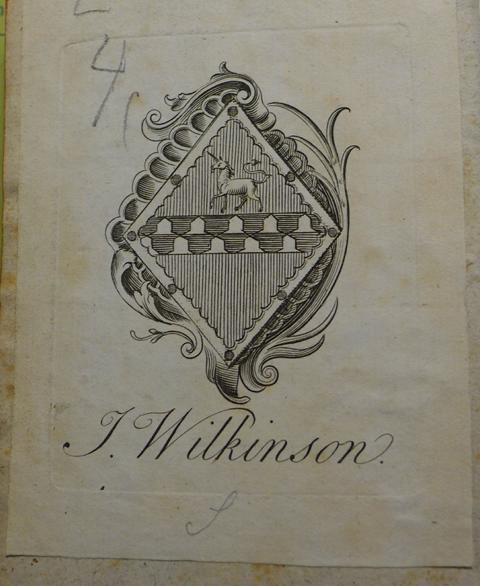 4
J. Wilkinson.